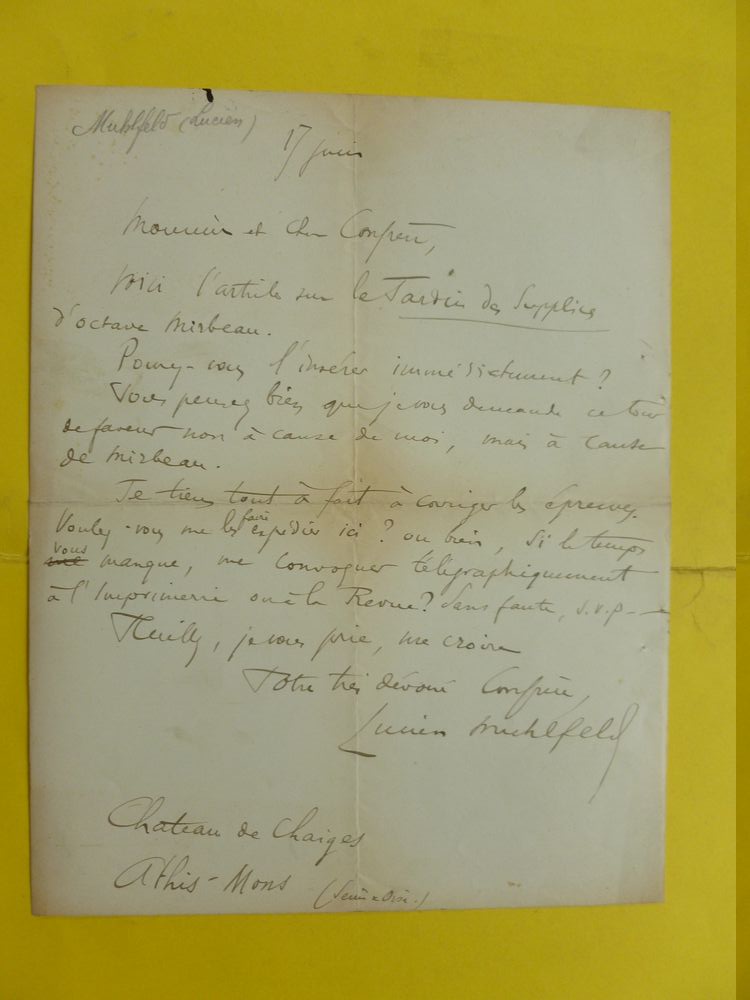 Muhlfeld (Lucien)
17 juin
Monsieur et cher Confrère,
Voici l'article sur le Jardin des Supplices
d'Octave Mirbeau.
Pouvez-vous l'insérer immédiatement ?
Vous pensez bien que je vous demande ce tour
de faveur non à cause de moi, mais à cause
de Mirbeau.
Je tiens tout à fait à corriger les épreuves.
Voulez-vous me les faire expédier ici ? ou bien, si le temps
me vous manque, me convoquer télégraphiquement
à l'Imprimerie ou à la Revue ? Sans faute, s.v.p. —
Veuillez, je vous prie, me croire
Votre très dévoué Confrère,
Lucien Muhlfeld
Chateau de Chaiges
Athis-Mons (Seine & Oise.)